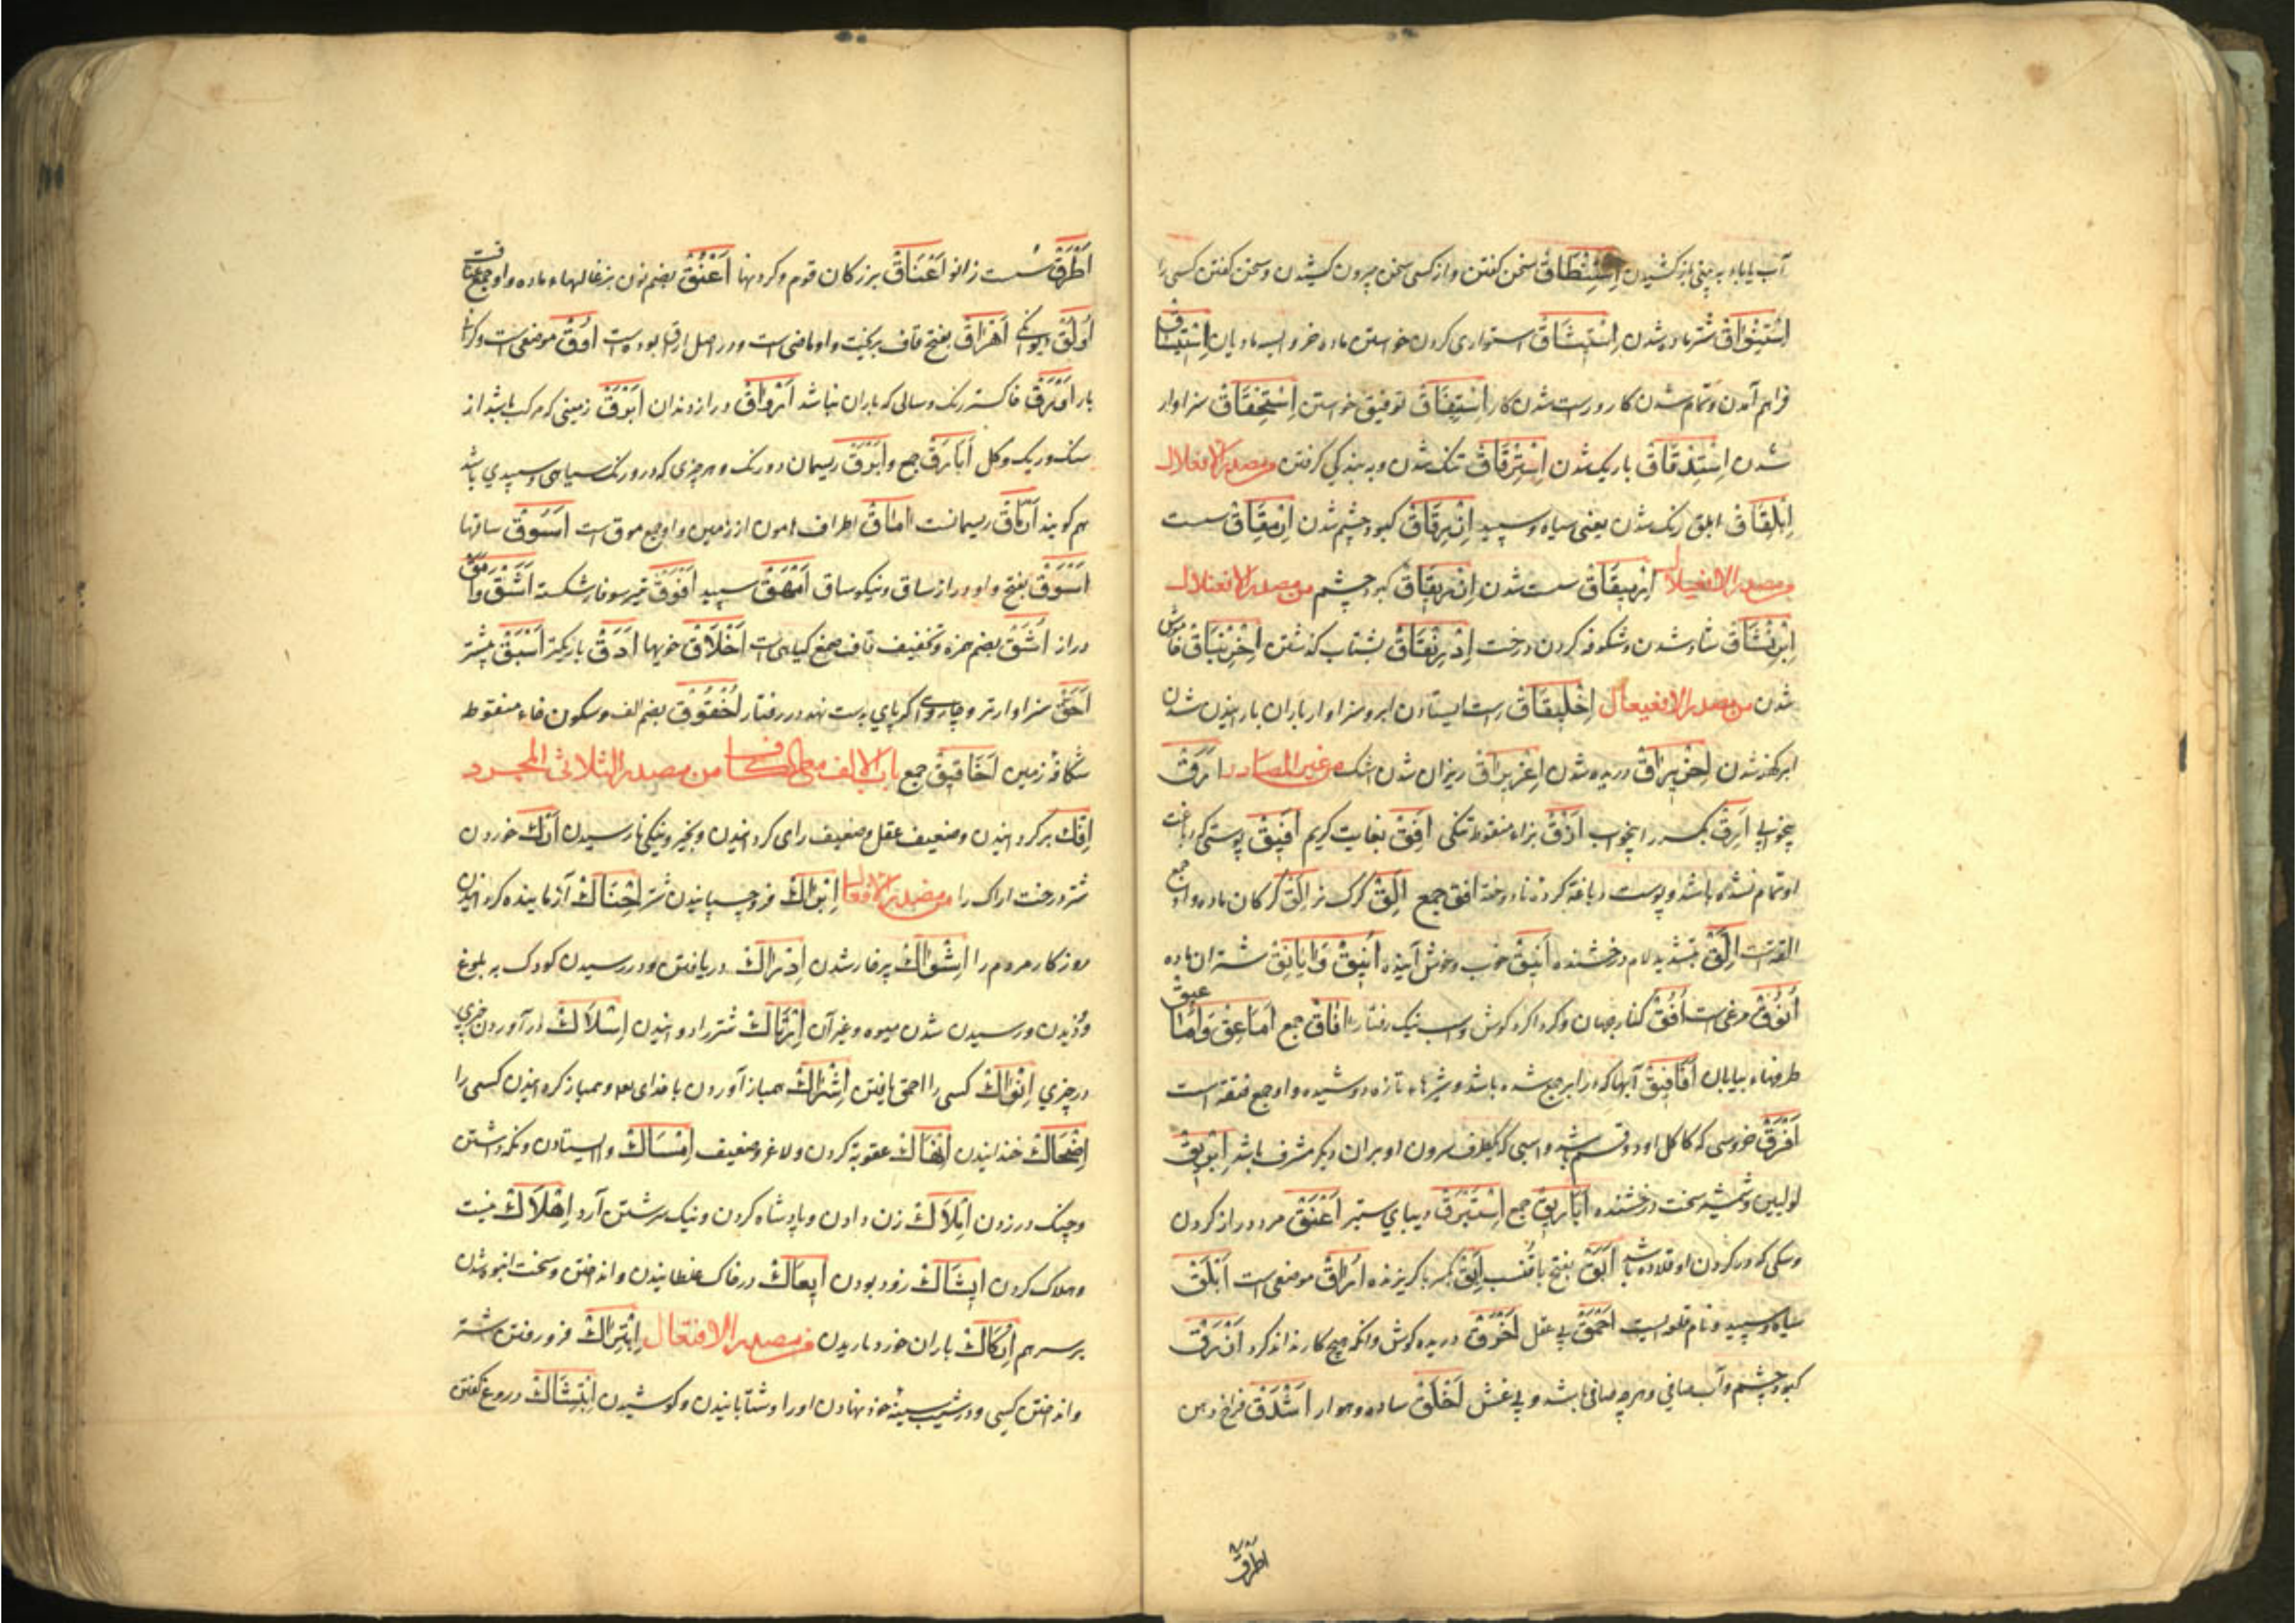 آب یا باد به بینی باز کشیدن اِسْتِنْطَاقْ سخن کفتن و از کسی سخن بیرون کشیدن و سخن کفتن کسی را
اِسْتِنْوَاقْ شتر ماده شدن اِسْتِیثَاقْ استواری کردن خواستن ماده خر و اسب مادیان اِسْتِیسَاقْ
فراهم آمدن و تمام شدن کار و راست شدن کار اِسْتِیفَاقْ توفیق خواستن اِسْتِحْقَاقْ سزاوار
شدن اِسْتِدْقَاقْ باریک شدن اِسْتِرْقَاقْ تنک شدن و به بندکی کرفتن من مصدر الافعلال
اِبْلِقَاقْ ابلق رنک شدن یعنی سیاه و سپید اِزْرِقَاقْ کبود چشم شدن اِرْمِقَاقْ سست
من مصدر الافعیلال اِرْمِیقَاقْ سست شدن اِزْرِیقَاقْ کبود چشم من مصدر الافعنلال
اِبْرِنْشَاقْ شاد شدن و شکوفه کردن درخت اِدْرِنْفَاقْ بشتاب کذشتن اِخْرِنْبَاقْ خاموش
شدن من مصدر الافعیعال اِخْلِیلَاقْ راست ایستادن ابر و سزاوار باران باریدن شدن
ابر کهنه شدن اِخْرِیرَاقْ دریده شدن اِغْرِیرَاقْ ریزان شدن اشک من غیر المصادر اَرَقْ
بیخوابی اَرِقْ بکسر را بیخواب اَزْقْ بزاء منقوط تنکی اَفِقْ بغایت کریم اَفِیقْ پوستی که دباغت
او تمام نشده باشد و پوست دباغة کرده نادوخته اَفَق جمع اِلْقْ کرک نر اِلَقْ کرکان ماده واو جمع
القة است اِلَّقْ بتشدید لام درخشنده اَنِیقْ خوب و خوش آینده اَنِیقْ وَاَیَانِقْ شتران ماده
اَنُوقْ مرغی است اُفُقْ کنار جهان و کرداکرد کوش و اسب نیک رفتار اٰفَاقْ جمع اَمَاعِقْ وَاَمَاعِیقْ
طرفهاء بیابان اَفَافِیقْ آبها که در ابر جمع شده باشد و شیرهاء تازه دوشیده و او جمع فیقة است
اَفْرَقْ خروسی که کاکل او دو قسم باشد و اسبی که یکطرف سرون او بر آن دیکر مشرف باشد اِبْرِیقْ
لولیین و شمشیر سخت درخشنده اَبَارِیقْ جمع اِسْتَبْرَقْ دیبای ستبر اَعْنَقْ مرد دراز کردن
و سکی که در کردن او قلاده باشد اَبَقْ بفتح با قنب اَبِقْ بکسر با کریزنده اُبْرَاقْ موضعی است اَبْلَقْ
سیاه و سپید و نام قلعه ایست اَحْمَقْ بی عقل اَخْرَقْ دریده کوش و آنکه هیچ کار نداند کرد اَزْرَقْ
کبود چشم و آب صافی و هر چه صافی باشد و بی غش اَخْلَقْ ساده و هموار اَشْدَقْ فراخ دهن
اَطْرَقْ
اَطْرَقْ سست زانو اَعْنَاقْ بزرکان قوم و کردنها اَعْنُقْ بضم نون بزغالهاء ماده و او جمع عناقست
اَوْلَقْ دیوانکی اَهْرَاقْ بفتح قاف بریخت و او ماضی است و در اصل اراق بوده است اُوَقْ موضعی است و کرانی
بار اَوْرَقْ خاکستر رنک و سالی که باران نباشد اَرْوَاقْ دراز دندان اَبْرَقْ زمینی که مرکب باشد از
سنک و ریک و کل اَبَارِقْ جمع و اَبْرَقْ ریسمان دو رنک و هر چیزی که در و رنک سیاهی و سپیدی باشد
هم کویند اَرْبَاقْ ریسمانست اٰمَاقْ اطراف درون از زمین و او جمع موق است اَسْوُقْ ساقها
اَسْوَقْ بفتح واو دراز ساق و نیکو ساق اَمْهَقْ سپید اَفْوَقْ تیر سوفار شکسته اَشْنَقْ وَاَمَقّ
دراز اُشَقْ بضم همزه و تخفیف قاف صمغ کیاهی است اَخْلَاقْ خویها اَدَقّْ باریکتر اَسْبَقْ پیشتر
اَحَقّْ سزاوارتر و چاروای که پای بدست نهد در رفتار لُخْقُوقْ بضم الف و سکون خاء منقوطه
شکاف زمین لَخَاقِیقْ جمع باب الالف مع الکاف من مصدر الثلاثی المجرد
اِفْكْ بر کردانیدن و ضعیف عقل و ضعیف رای کردانیدن و بخیر و نیکی نارسیدن اَرْكْ خوردن
شتر درخت اراک را من مصدر الافعال اِبْرَاكْ فرو چسپانیدن شتر اِحْنَاكْ آزماینده کردانیدن
روزکار مردم را اِشْوَاكْ پر خار شدن اِدْرَاكْ دریافتن و در رسیدن کودک به بلوغ
و دیدن و رسیدن شدن میوه و غیر آن اِرْتَاكْ شتر را دوانیدن اِسْلَاكْ در آوردن چیزی
در چیزی اِنْوَاكْ کسی را احمق یافتن اِشْرَاكْ همباز آوردن با خدای تعالی و همباز کردانیدن کسی را
اِضْحَاكْ خندانیدن اِنْهَاكْ عقوبة کردن و لاغر و ضعیف اِمْسَاكْ وا ایستادن و نکه داشتن
و چنک در زدن اِمْلَاكْ زن دادن و پادشاه کردن و نیک سرشتن آرد اِهْلَاكْ نیست
و هلاک کردن اِیشَاكْ زود بودن اِیعَاكْ در خاک غلطانیدن و انداختن و سخت انبوه شدن
بر سر هم اِرْكَاكْ باران خورد باریدن من مصدر الافتعال اِبْتِرَاكْ فرو رفتن شتر
و انداختن کسی و در شیب سینهٔ خود نهادن او را و شتابانیدن و کوشیدن اِبْتِشَاكْ دروغ کفتن